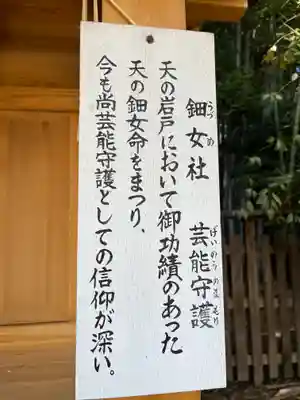 鈿女社 芸能守護
うづめ げいのうのまもり
天の岩戸において御功績のあった
天の鈿女命をまつり、
今も尚芸能守護としての信仰が深い。